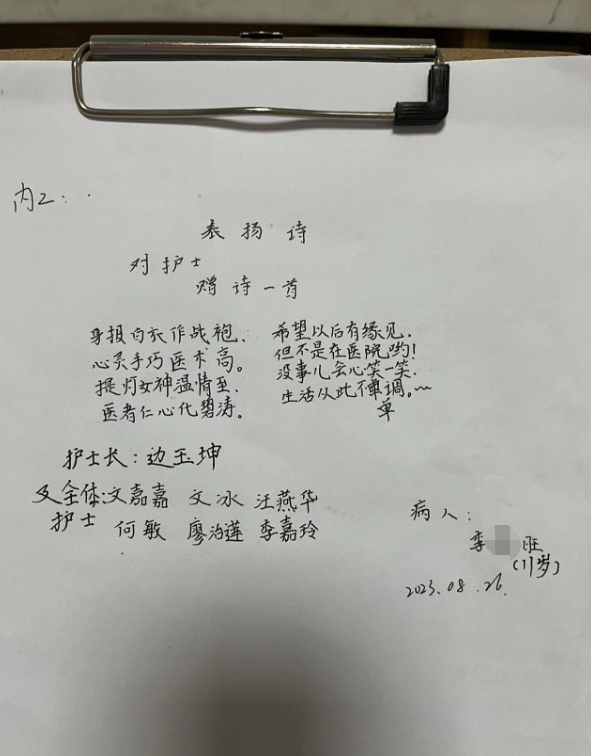 内二:
表扬诗
对护士
赠诗一首
身报白衣作战袍.
心灵手巧医术高。
提灯女神温情至.
医者仁心化碧涛。
希望以后有缘见.
但不是在医院哟!
没事儿会心笑一笑.
生活从此不单调。~
单
护士长:边玉坤
及全体:文嘉嘉 文冰 汪燕华
护士 何敏 廖治莲 李嘉玲
病人:
李 旺
(11岁)
2023.08.26.